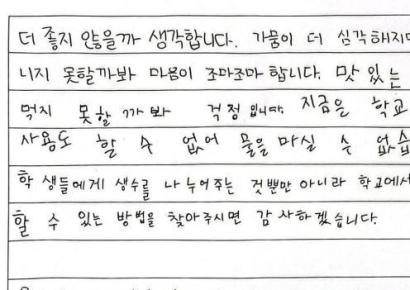 더 좋지 않을까 생각합니다. 가뭄이 더 심각해지면
니지 못할까봐 마음이 조마조마 합니다. 맛 있는
먹지 못할 까 봐 걱정 입니다. 지금은 학교
사용도 할 수 없어 물을 마실 수 없습
학 생들에게 생수를 나누어주는 것뿐만 아니라 학교에서
할 수 있는 방법을 찾아주시면 감 사하겠습니다.